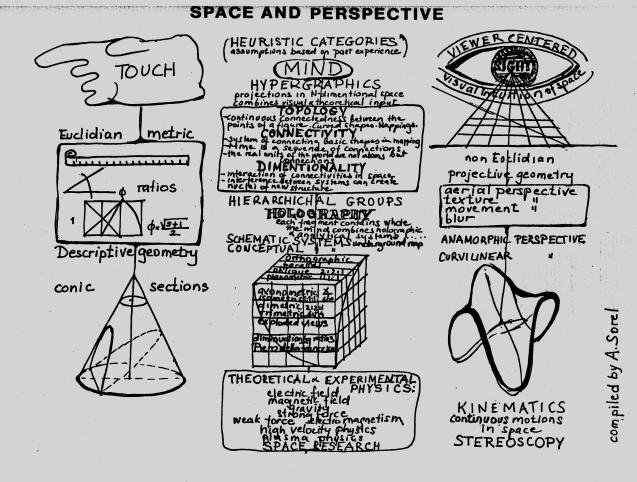 SPACE AND PERSPECTIVE
TOUCH
Euclidian metric
ratios
1
ϕ
ϕ=√5+1/2
Descriptive geometry
conic sections
(HEURISTIC CATEGORIES"
assumptions based on "past experience)
MIND
HYPERGRAPHICS
projections in N-dimentional space
combines visual & theoretical input
TOPOLOGY
-continuous connectedness between the
points of a figure. Curved shapes. Mappings.
CONNECTIVITY
-system of connecting basic shapes in mapping
-time is a sequence of connections.
-the real units of the world are not atoms but
connections
DIMENTIONALITY
-interaction of connectivities in space
-interference between systems can create
nuclei of new structure
HIERARCHICHAL GROUPS
HOLOGRAPHY
each fragment contains whole
the mind combines holographic
& analytical systems
SCHEMATIC SYSTEMS underground map
CONCEPTUAL " "
orthographic
parallel
oblique
planometric
axonometric
isometric
dimetric
trimetric
exploded views
THEORETICAL & EXPERIMENTAL
PHYSICS:
electric field
magnetic field
gravity
strong force
weak force electromagnetism
high velocity physics
plasma physics
SPACE RESEARCH
VIEWER CENTERED
SIGHT
visual intuition of space
non Euclidian
projective geometry
aerial perspective
texture "
movement "
blur
ANAMORPHIC PERSPECTIVE
CURVILINEAR "
KINEMATICS
continuous motions
in space
STEREOSCOPY
compiled by A. Sorel